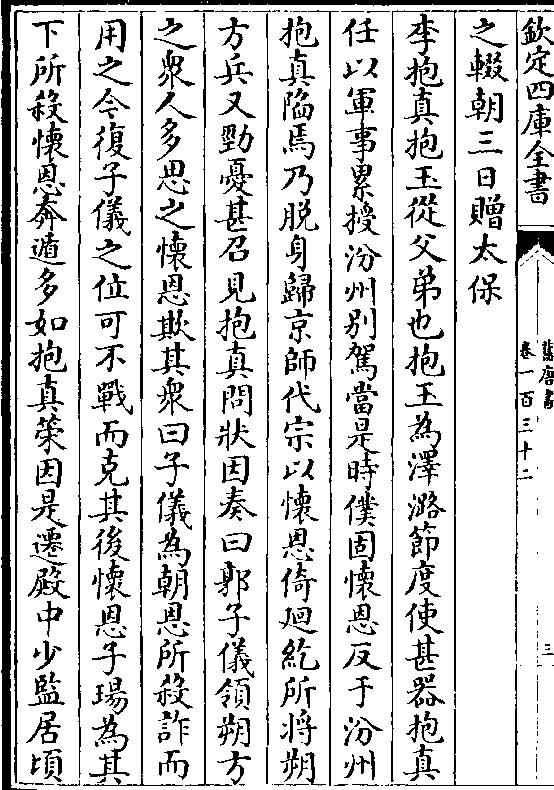 欽定四庫全書
舊唐書
卷一百三十二
三
之輟朝三日贈太保
李抱真抱玉從父弟也抱玉為澤潞節度使甚器抱真
任以軍事累授汾州别駕當是時僕固懷恩反于汾州
抱真陷焉乃脱身歸京師代宗以懷恩倚廻紇所将朔
方兵又勁憂甚召見抱真問狀因奏曰郭子儀領朔方
之衆人多思之懷恩欺其衆曰子儀為朝恩所殺詐而
用之今復子儀之位可不戰而克其後懷恩子瑒為其
下所殺懷恩奔遁多如抱真策因是遷殿中少監居頃